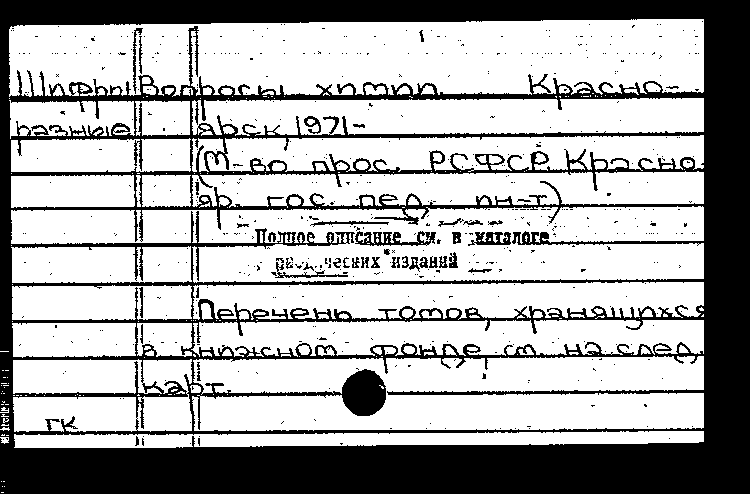 Шифры Вопросы химии. Красно-
разные ярск, 1971-
(М-во прос. РСФСР. Красно-
яр. гос. пед. ин-т)
Полное описание см. в каталоге
изданий
Перечень томов, хранящихся
в книжном фонде, см. на след.
карт.
ГК